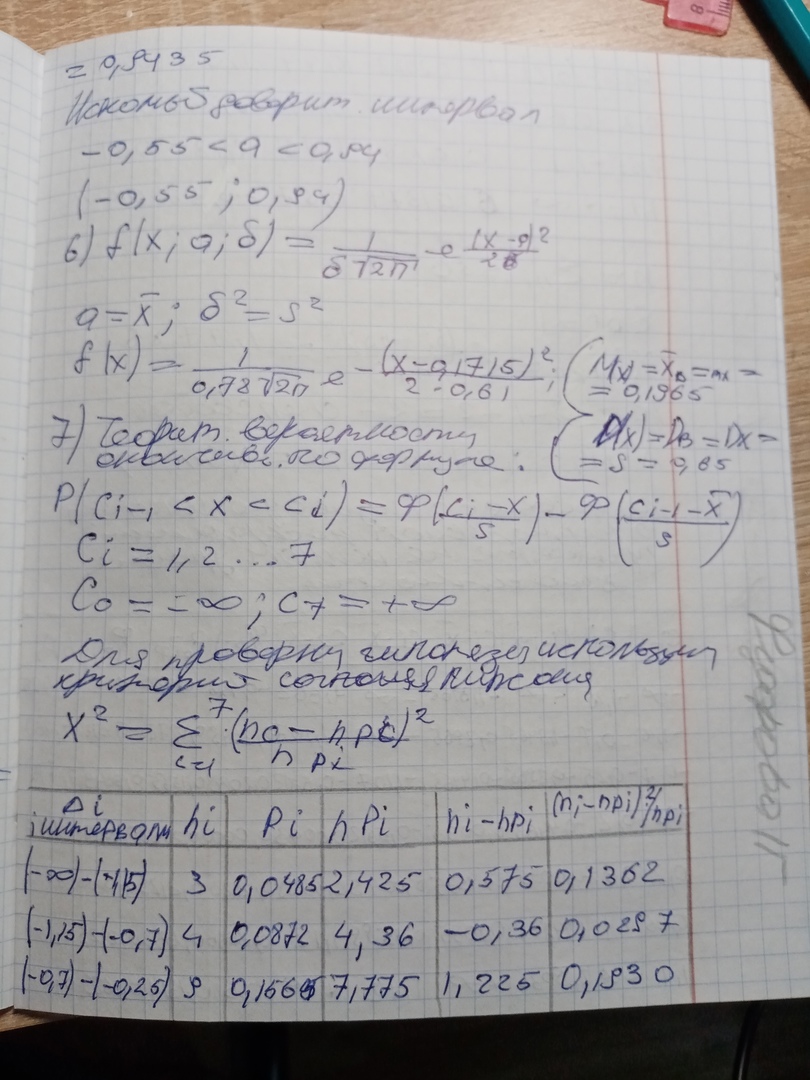 = 0,9435
Искомый доверит. интервал
-0,55 < a < 0,94
(-0,55 ; 0,94)
6) f(x; a; б) = 1/(б√2П) e (x-a)²/2б
a = x̄ ; б² = s²
f(x) = 1/(0,78√2П) e -(x-0,1715)²/(2·0,61) ;
M(x) = x̄в = mx =
= 0,1965
D(x) = Dв = Dx =
= S = 0,65
7) Теорит. вероятности
по формуле:
P(Ci-1 < x < Ci) = Ф((Ci-x)/s) - Ф((Ci-1-x̄)/s)
Ci = 1, 2 ... 7
C0 = -∞ ; C7 = +∞
Для проверки гипотезы используем
критерий согласия Пирсона
X² = Σ⁷i=1 (ni - npi)²/npi
Δi интервалы | ni | Pi | nPi | ni-npi | (ni-npi)²/npi
(-∞)-(-1,15) | 3 | 0,0485 | 2,425 | 0,575 | 0,1362
(-1,15)-(-0,7) | 4 | 0,0872 | 4,36 | -0,36 | 0,0297
(-0,7)-(-0,25) | 9 | 7,775 | 1,225 | 0,1930